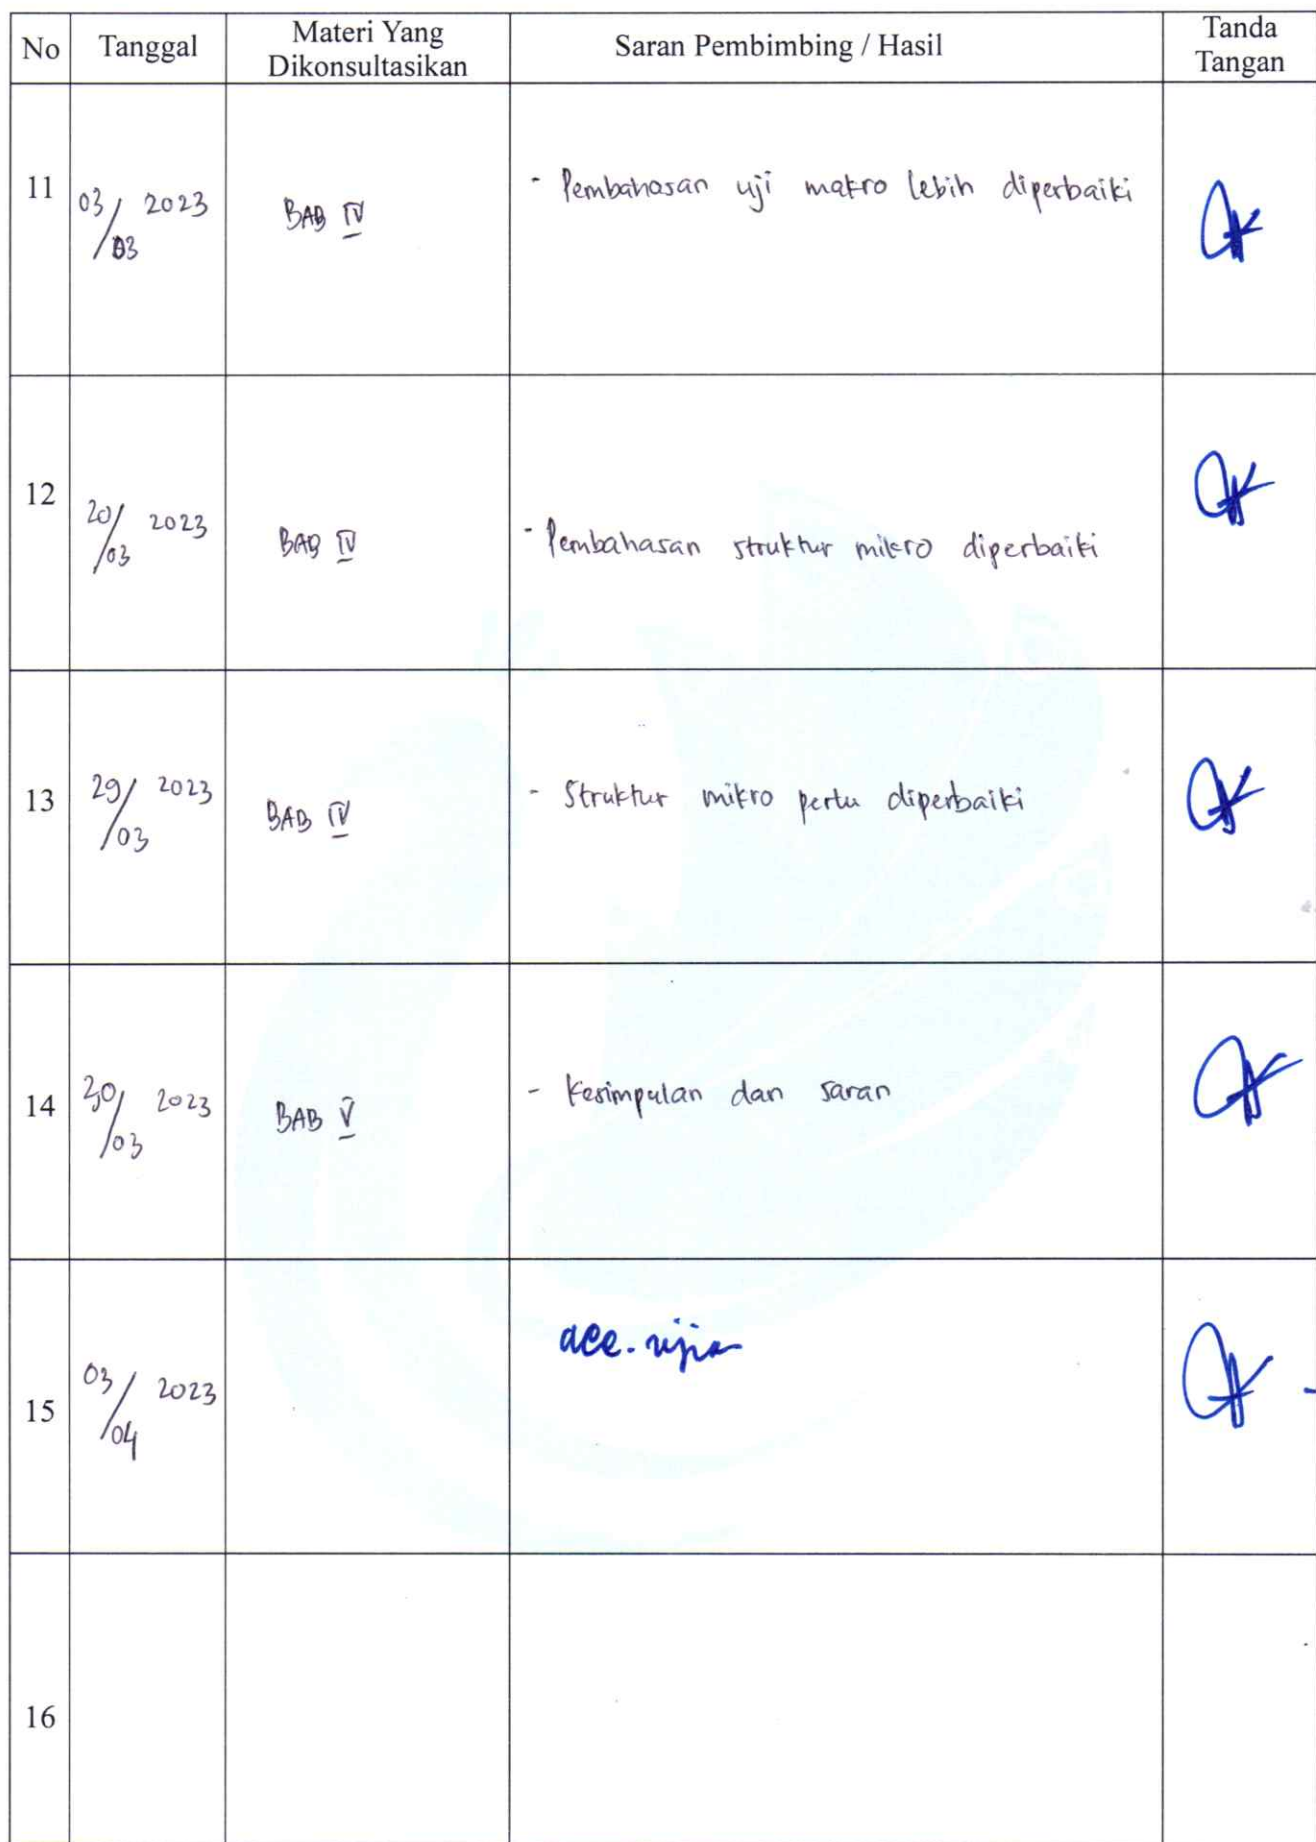 No Tanggal Materi Yang Dikonsultasikan Saran Pembimbing / Hasil Tanda Tangan
11 03/03 2023 BAB IV - Pembahasan uji makro lebih diperbaiki
12 20/03 2023 BAB IV - Pembahasan struktur mikro diperbaiki
13 29/03 2023 BAB IV - Struktur mikro perlu diperbaiki
14 30/03 2023 BAB V - Kesimpulan dan saran
15 03/04 2023 acc. ujian
16